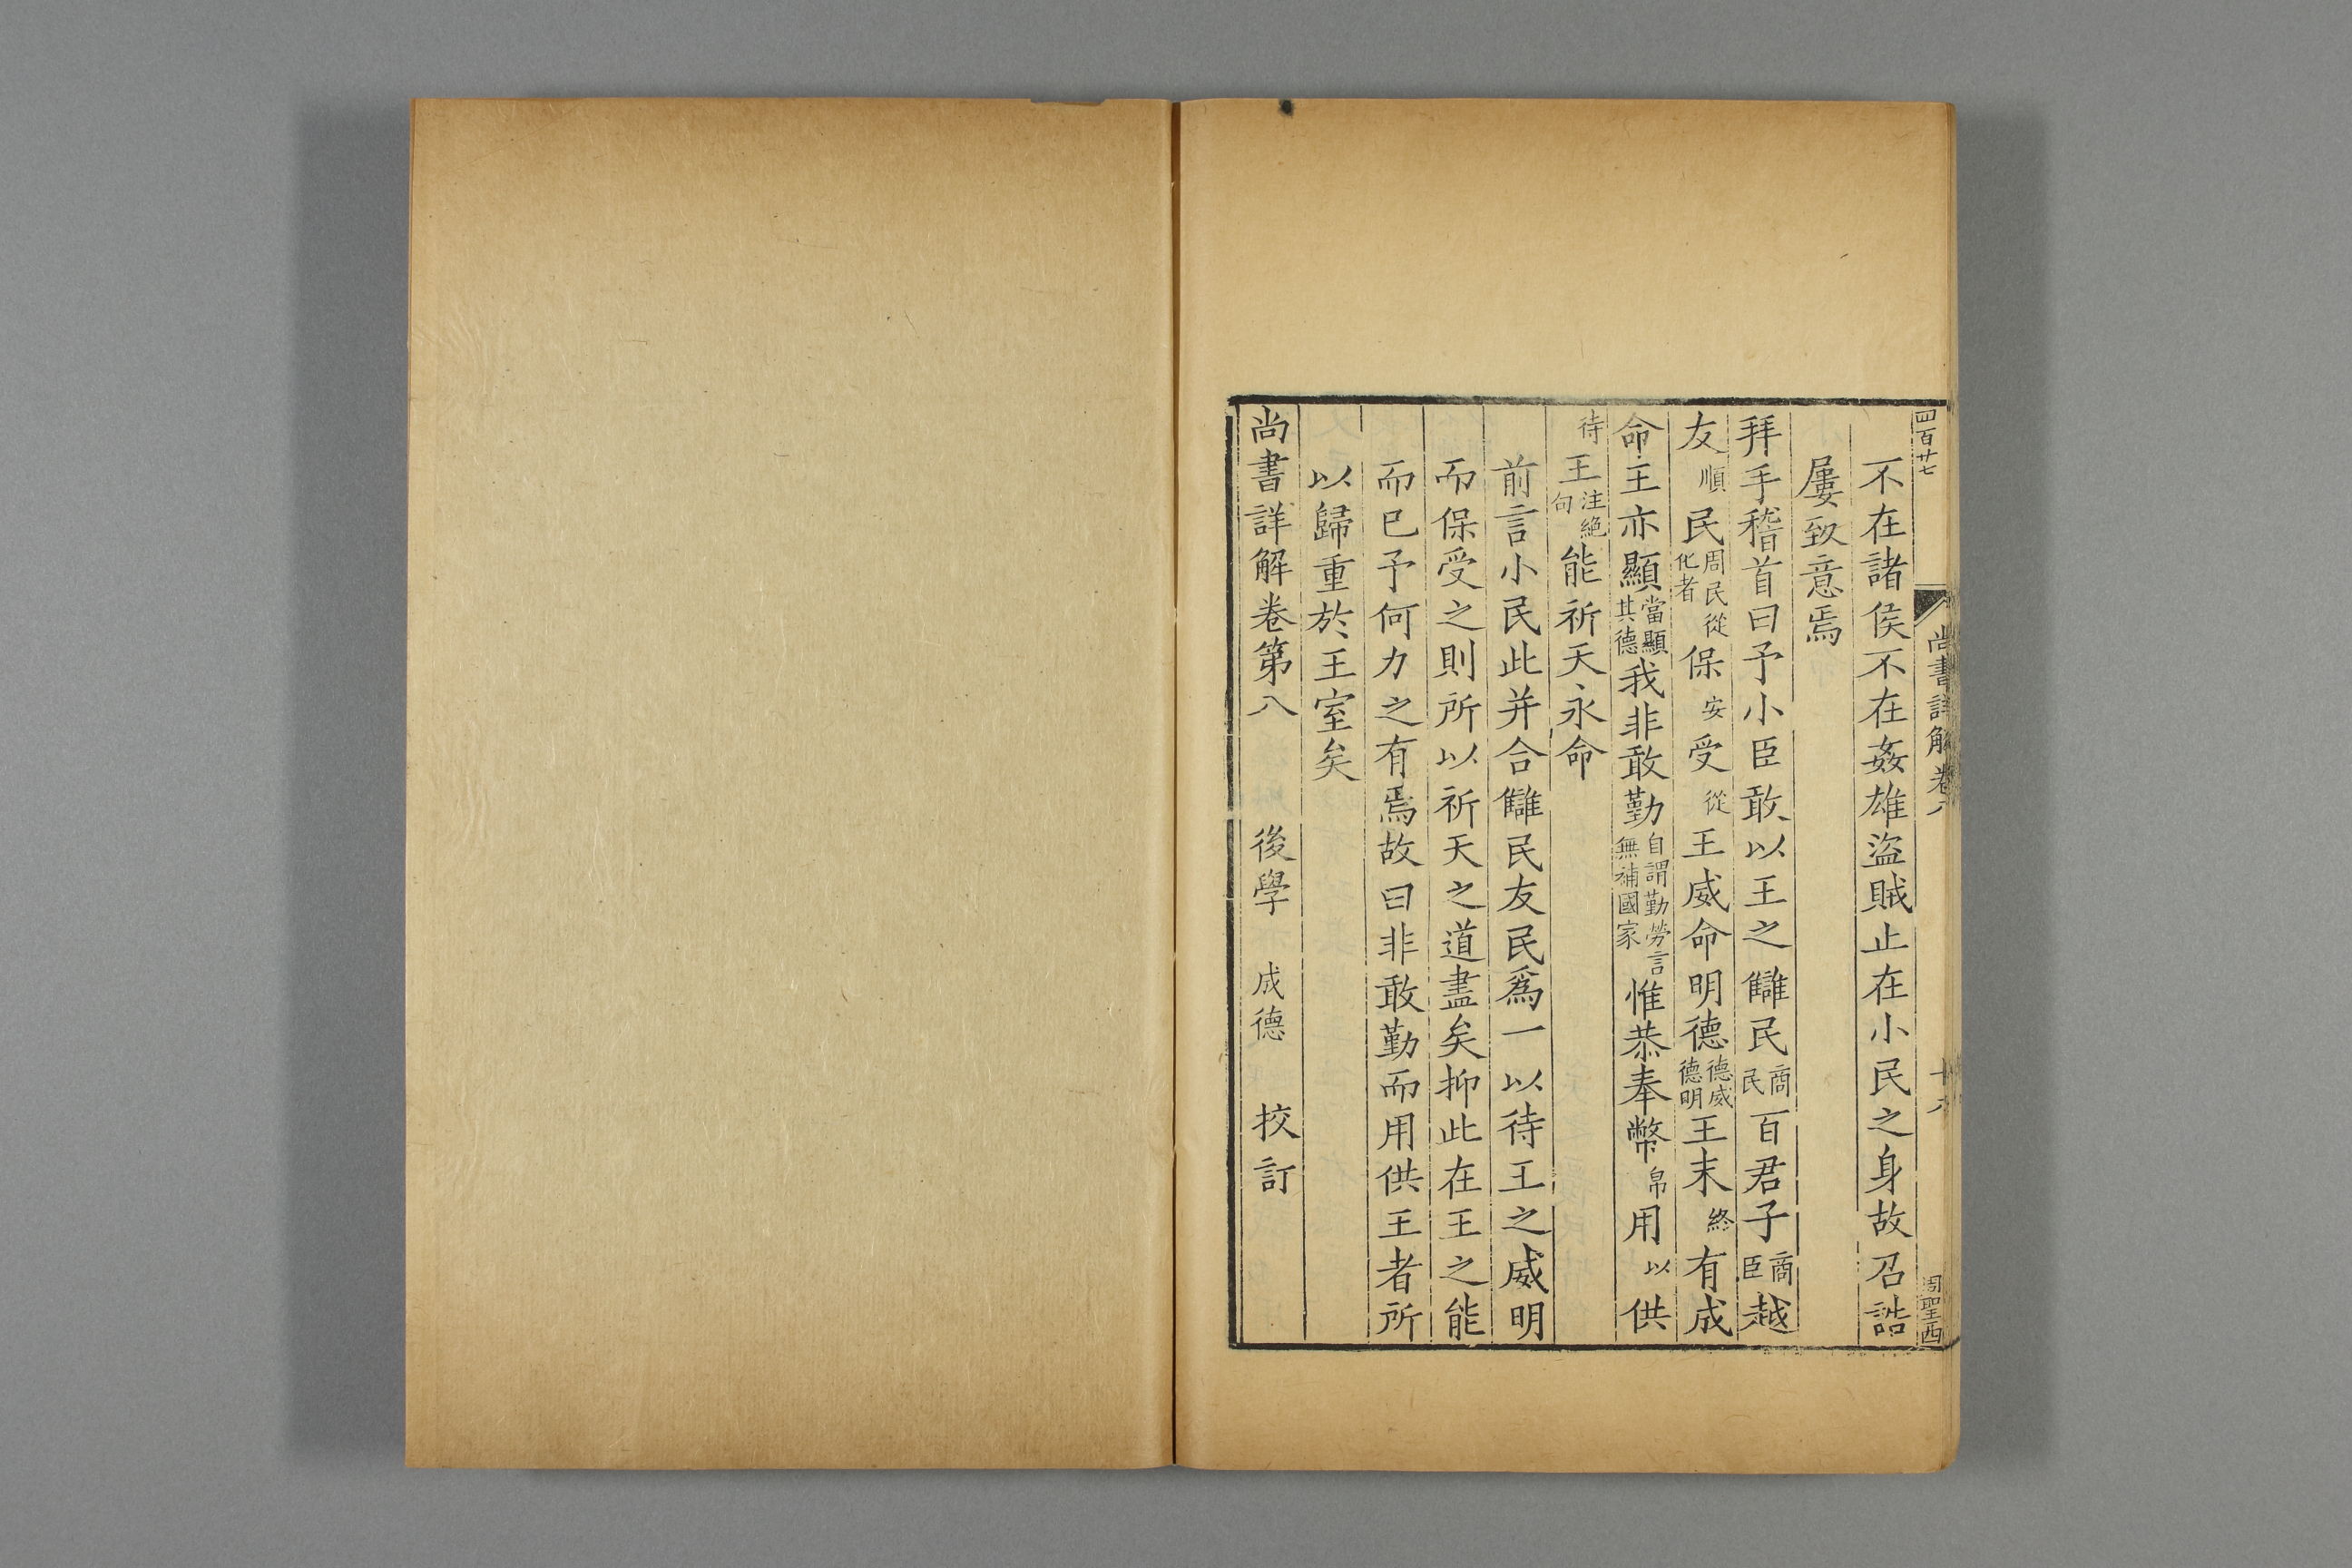 四百廿七
尚書詳解卷八
周聖西
不在諸侯不在姦雄盜賊止在小民之身故召誥
屢致意焉
拜手稽首曰予小臣敢以王之讎民商民百君子商臣越
友順民周民從化者保安受從王威命明德德威德明王末終有成
命王亦顯當顯其德我非敢勤自謂勤勞言無補國家惟恭奉幣帛用以供
待王注絶句能祈天永命
前言小民此并合讎民友民爲一以待王之威明
而保受之則所以祈天之道盡矣抑此在王之能
而已予何力之有焉故曰非敢勤而用供王者所
以歸重於王室矣
尚書詳解卷第八 後學 成德 挍訂